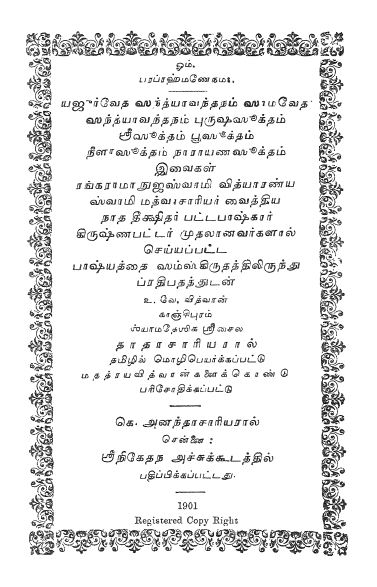 ஓம்.
பரப்ரஹ்மணேநம:.
யஜுர்வேத ஸந்த்யாவந்தநம் ஸாமவேத
ஸந்த்யாவந்தநம் புருஷஸூக்தம்
ஸ்ரீஸூக்தம் பூஸூக்தம்
நீளாஸூக்தம் நாராயணஸூக்தம்
இவைகள்
ரங்கராமாநுஜஸ்வாமி வித்யாரண்ய
ஸ்வாமி மத்வாசாரியர் வைத்திய
நாத தீக்ஷிதர் பட்டபாஷ்கரர்
கிருஷ்ணபட்டர் முதலானவர்களால்
செய்யப்பட்ட
பாஷ்யத்தை ஸம்ஸ்கிருதத்திலிருந்து
ப்ரதிபதத்துடன்
உ. வே. வித்வான்
காஞ்சீபுரம்
ஸ்யாமதேஸிக ஸ்ரீசைல
தாதாசாரியரால்
தமிழில் மொழிபெயர்க்கப்பட்டு
மதத்ரயவித்வான்களைக்கொண்டு
பரிசோதிக்கப்பட்டு
கெ. அனந்தாசாரியரால்
சென்னை:
ஸ்ரீநிகேதந அச்சுக்கூடத்தில்
பதிப்பிக்கப்பட்டது.
1901
Registered Copy Right